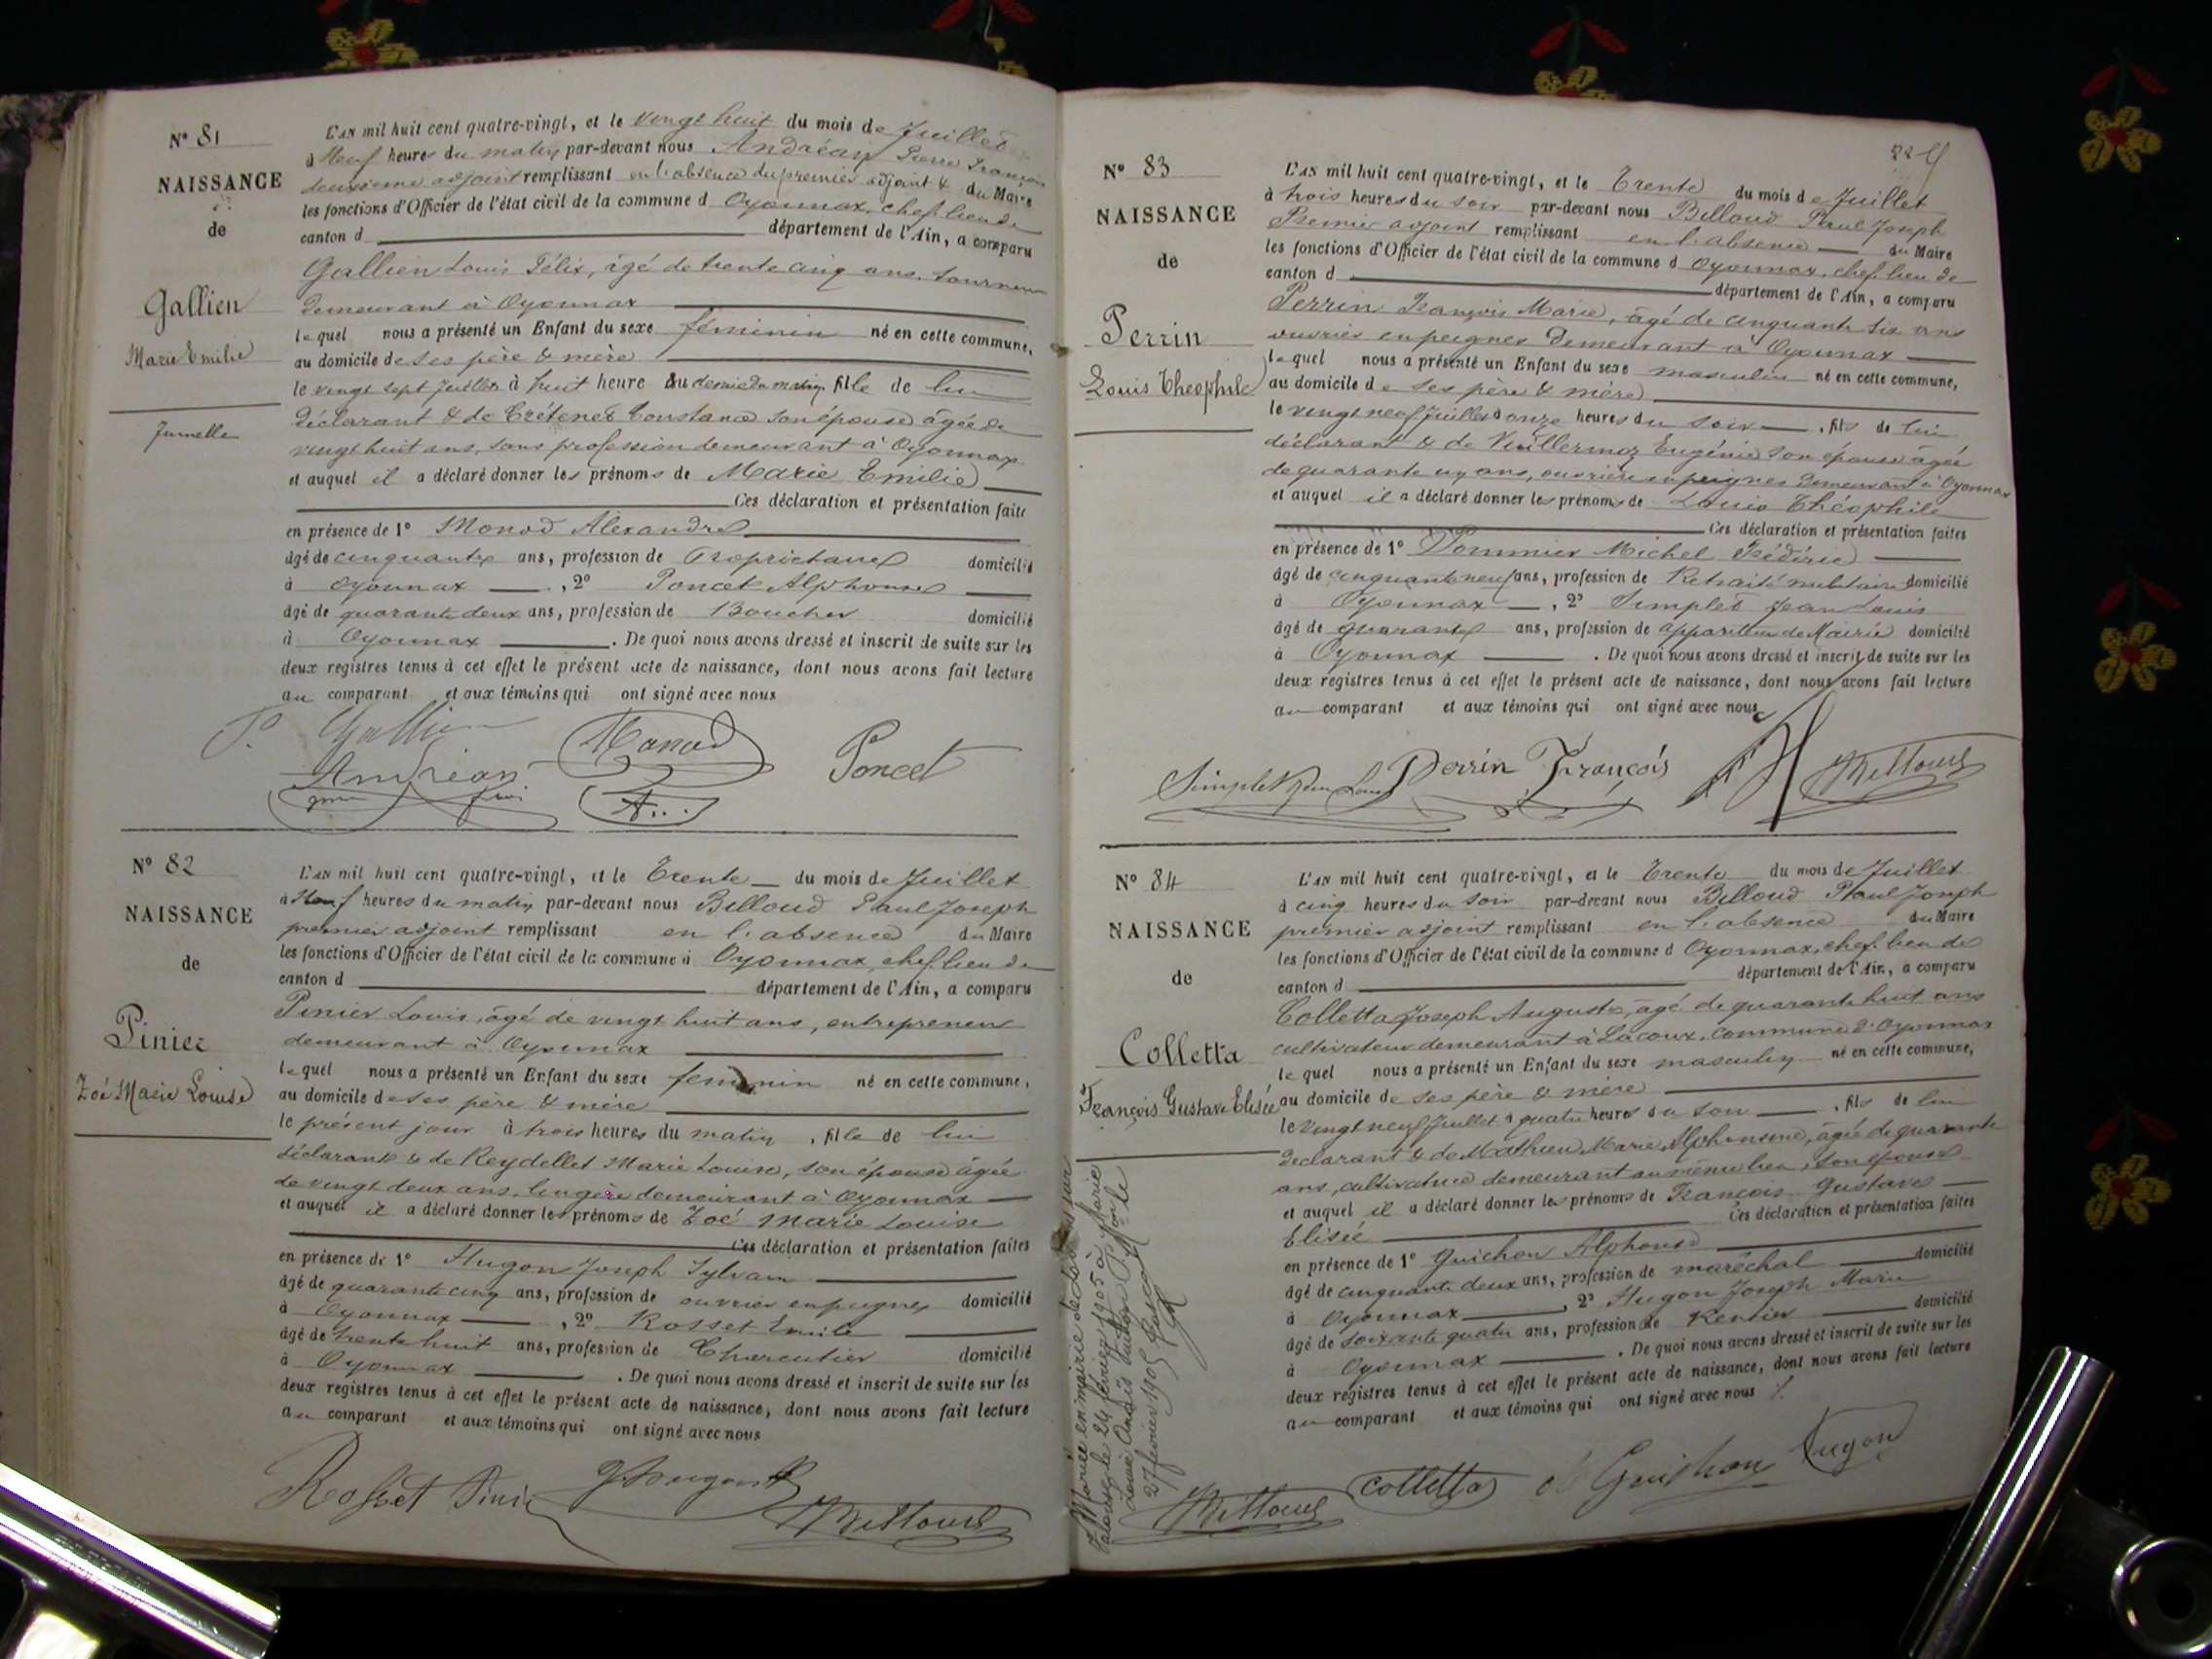 N° 81
NAISSANCE
de
Gallien
Marie Emilie
Jumelle
L'AN mil huit cent quatre-vingt, et le vingt huit du mois de Juillet
à Neuf heures du matin par-devant nous Andréan Pierre François
deuxième adjoint remplissant en l'absence du premier adjoint & du Maire
les fonctions d'Officier de l'état civil de la commune d Oyonnax, chef lieu de
canton d département de l'Ain, a comparu
Gallien Louis Félix, âgé de trente cinq ans, tourneur
demeurant à Oyonnax
lequel nous a présenté un Enfant du sexe féminin né en cette commune,
au domicile de ses père & mère
le vingt sept Juillet à huit heure & demie du matin, fille de lui
déclarant & de Crétenet Constance son épouse âgée de
vingt huit ans, sans profession demeurant à Oyonnax
et auquel il a déclaré donner les prénoms de Marie Emilie
Ces déclaration et présentation faite
en présence de 1° Monod Alexandre
âgé de cinquante ans, profession de Propriétaire domicilié
à Oyonnax , 2° Poncet Alphonse
âgé de quarante deux ans, profession de Boucher domicilié
à Oyonnax . De quoi nous avons dressé et inscrit de suite sur les
deux registres tenus à cet effet le présent acte de naissance, dont nous avons fait lecture
au comparant et aux témoins qui ont signé avec nous
Gallien Monod Poncet
Andréan
N° 82
NAISSANCE
de
Pinier
Zoé Marie Louise
L'AN mil huit cent quatre-vingt, et le Trente du mois de Juillet
à Neuf heures du matin par-devant nous Billoud Paul Joseph
premier adjoint remplissant en l'absence du Maire
les fonctions d'Officier de l'état civil de la commune d Oyonnax, chef lieu de
canton d département de l'Ain, a comparu
Pinier Louis, âgé de vingt huit ans, entrepreneur
demeurant à Oyonnax
lequel nous a présenté un Enfant du sexe feminin né en cette commune,
au domicile de ses père & mère
le présent jour à trois heures du matin , fille de lui
déclarant & de Reydellet Marie Louise, son épouse âgée
de vingt deux ans, lingère demeurant à Oyonnax
et auquel il a déclaré donner les prénoms de Zoé Marie Louise
Ces déclaration et présentation faites
en présence de 1° Hugon Joseph Sylvain
âgé de quarante cinq ans, profession de ouvrier en peignes domicilié
à Oyonnax , 2° Rosset Emile
âgé de trente huit ans, profession de Charcutier domicilié
à Oyonnax . De quoi nous avons dressé et inscrit de suite sur les
deux registres tenus à cet effet le présent acte de naissance, dont nous avons fait lecture
au comparant et aux témoins qui ont signé avec nous
Rosset Pinier J. Hugon
Billoud
N° 83
NAISSANCE
de
Perrin
Louis Théophile
L'AN mil huit cent quatre-vingt, et le Trente du mois de Juillet
à trois heures du soir par-devant nous Billoud Paul Joseph
Premier adjoint remplissant en l'absence du Maire
les fonctions d'Officier de l'état civil de la commune d Oyonnax, chef lieu de
canton d département de l'Ain, a comparu
Perrin François Marie, âgé de cinquante six ans
ouvrier en peignes demeurant à Oyonnax
lequel nous a présenté un Enfant du sexe masculin né en cette commune,
au domicile de ses père & mère
le vingt neuf Juillet à onze heures du soir , fils de lui
déclarant & de Vuillermoz Eugénie son épouse âgée
de quarante un ans, ouvrière en peignes demeurant à Oyonnax
et auquel il a déclaré donner les prénoms de Louis Théophile
Ces déclaration et présentation faites
en présence de 1° Michel Frédéric
âgé de cinquante neuf ans, profession de Retraité militaire domicilié
à Oyonnax , 2° Simplet Jean Louis
âgé de quarante ans, profession de appariteur de Mairie domicilié
à Oyonnax . De quoi nous avons dressé et inscrit de suite sur les
deux registres tenus à cet effet le présent acte de naissance, dont nous avons fait lecture
au comparant et aux témoins qui ont signé avec nous
Simplet Jean Louis Perrin François Billoud
N° 84
NAISSANCE
de
Colletta
François Gustave Elisée
L'AN mil huit cent quatre-vingt, et le Trente du mois de Juillet
à cinq heures du soir par-devant nous Billoud Paul Joseph
premier adjoint remplissant en l'absence du Maire
les fonctions d'Officier de l'état civil de la commune d Oyonnax, chef lieu de
canton d département de l'Ain, a comparu
Colletta Joseph Auguste, âgé de quarante huit ans
cultivateur demeurant à Lacoux, commune d'Oyonnax
lequel nous a présenté un Enfant du sexe masculin né en cette commune,
au domicile de ses père & mère
le vingt neuf Juillet à quatre heures du soir , fils de lui
déclarant & de Mathieu Marie Alphonsine, âgée de quarante
ans, cultivatrice demeurant au même lieu, son épouse
et auquel il a déclaré donner les prénoms de François Gustave
Elisée Ces déclaration et présentation faites
en présence de 1° Guichon Alphonse
âgé de cinquante deux ans, profession de maréchal domicilié
à Oyonnax , 2° Hugon Joseph Marie
âgé de soixante quatre ans, profession de Rentier domicilié
à Oyonnax . De quoi nous avons dressé et inscrit de suite sur les
deux registres tenus à cet effet le présent acte de naissance, dont nous avons fait lecture
au comparant et aux témoins qui ont signé avec nous
Billoud Colletta Guichon Hugon
Marié en mairie de
le 24 février 1905 à Marie
27 février 1905